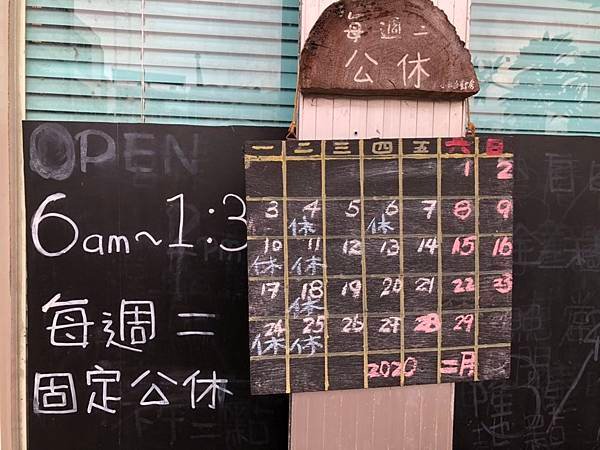 每週二
公休
OPEN
6am~1:3
每週二
固定公休
一 二 三 四 五 六 日
1 2
3 4 5 6 7 8 9
休 休
10 11 12 13 14 15 16
休 休
17 18 19 20 21 22 23
休
24 25 26 27 28 29
休 休
2020 二月